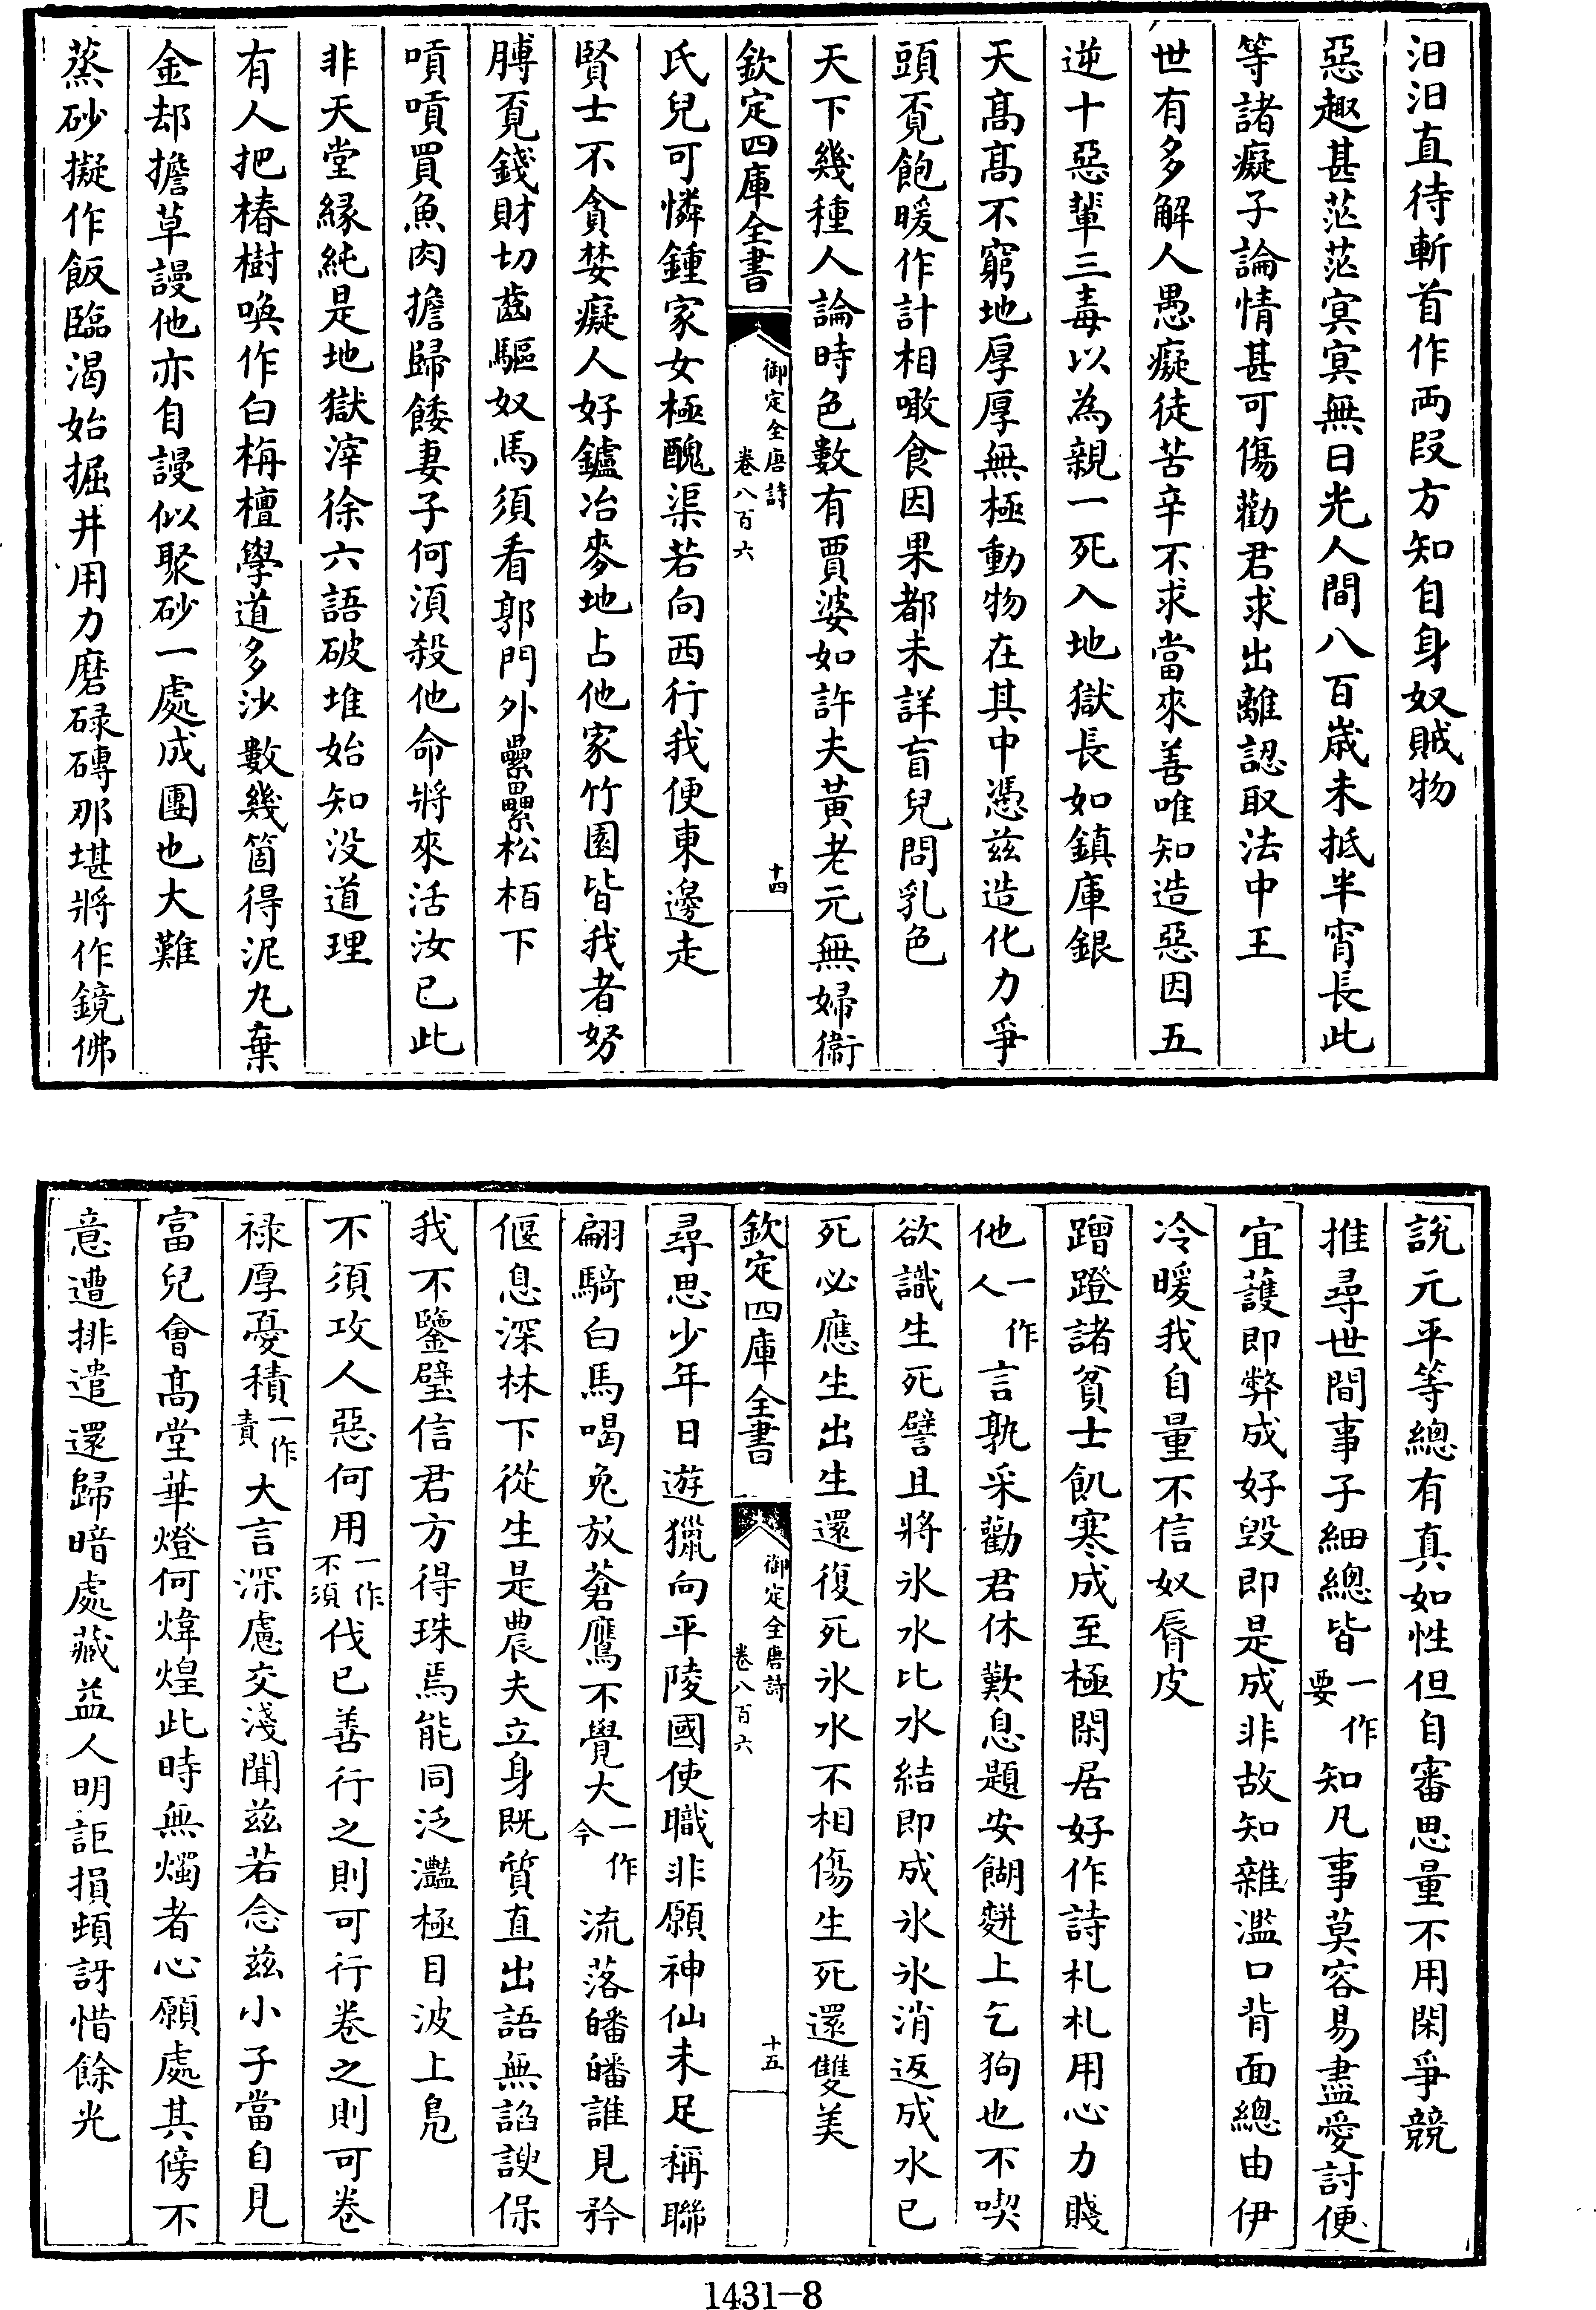 汩汩直待斬首作兩段方知自身奴賊物
惡趣甚茫茫冥冥無日光人間八百歲未抵半宵長此
等諸癡子論情甚可傷勸君求出離認取法中王
世有多解人愚癡徒苦辛不求當來善唯知造惡因五
逆十惡輩三毒以為親一死入地獄長如鎮庫銀
天髙髙不窮地厚厚無極動物在其中憑兹造化力爭
頭覔飽暖作計相噉食因果都未詳盲兒問乳色
天下幾種人論時色數有賈婆如許夫黃老元無婦衞
欽定四庫全書
御定全唐詩
卷八百六
十四
氏兒可憐鍾家女極醜渠若向西行我便東邊走
賢士不貪婪癡人好鑪冶麥地占他家竹園皆我者努
膊覔錢財切齒驅奴馬須看郭門外纍纍松栢下
嘖嘖買魚肉擔歸餧妻子何須殺他命將來活汝已此
非天堂緣純是地獄滓徐六語破堆始知没道理
有人把椿樹喚作白栴檀學道多沙數幾箇得泥丸棄
金却擔草謾他亦自謾似聚砂一處成團也大難
蒸砂擬作飯臨渴始掘井用力磨碌磚那堪將作鏡佛
説元平等總有真如性但自審思量不用閑爭競
推尋世間事子細總皆一作要知凡事莫容易盡愛討便
宜護即弊成好毀即是成非故知雜濫口背面總由伊
冷暖我自量不信奴脣皮
蹭蹬諸貧士飢寒成至極閑居好作詩札札用心力賤
他一作人言孰采勸君休歎息題安餬䴵上乞狗也不喫
欲識生死譬且將氷水比水結即成氷氷消返成水已
死必應生出生還復死氷水不相傷生死還雙美
欽定四庫全書
御定全唐詩
卷八百六
十五
尋思少年日遊獵向平陵國使職非願神仙未足稱聯
翩騎白馬喝兔放蒼鷹不覺大一作今流落皤皤誰見矜
偃息深林下從生是農夫立身既質直出語無諂諛保
我不鑒璧信君方得珠焉能同泛灩極目波上鳧
不須攻人惡何用一作不須伐已善行之則可行卷之則可卷
禄厚憂積一作責大言深慮交淺聞兹若念兹小子當自見
富兒會髙堂華燈何煒煌此時無燭者心願處其傍不
意遭排遣還歸暗處藏益人明詎損頓訝惜餘光
1431-8